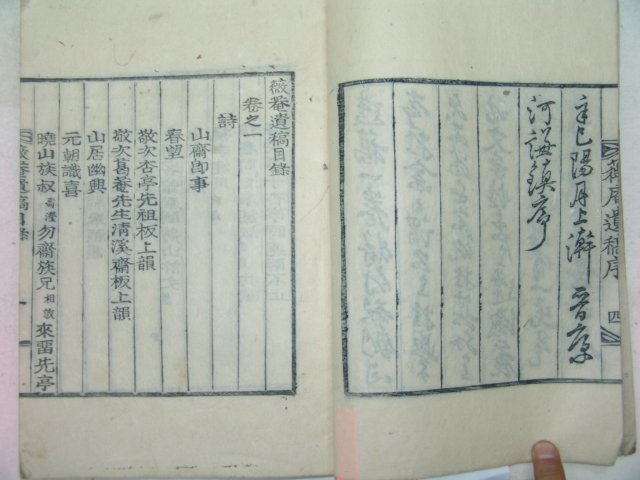 薇庵遺稿序 四
辛巳陽月上澣 晉康
河謙鎭序
薇菴遺稿目錄
卷之一
詩
山齋卽事
春望
敬次杏亭先祖板上韻
敬次葛菴先生淸溪齋板上韻
山居幽興
元朝識喜
曉山族叔 壽澄 勿齋族兄 相敦 來留先亭
薇菴遺稿目錄